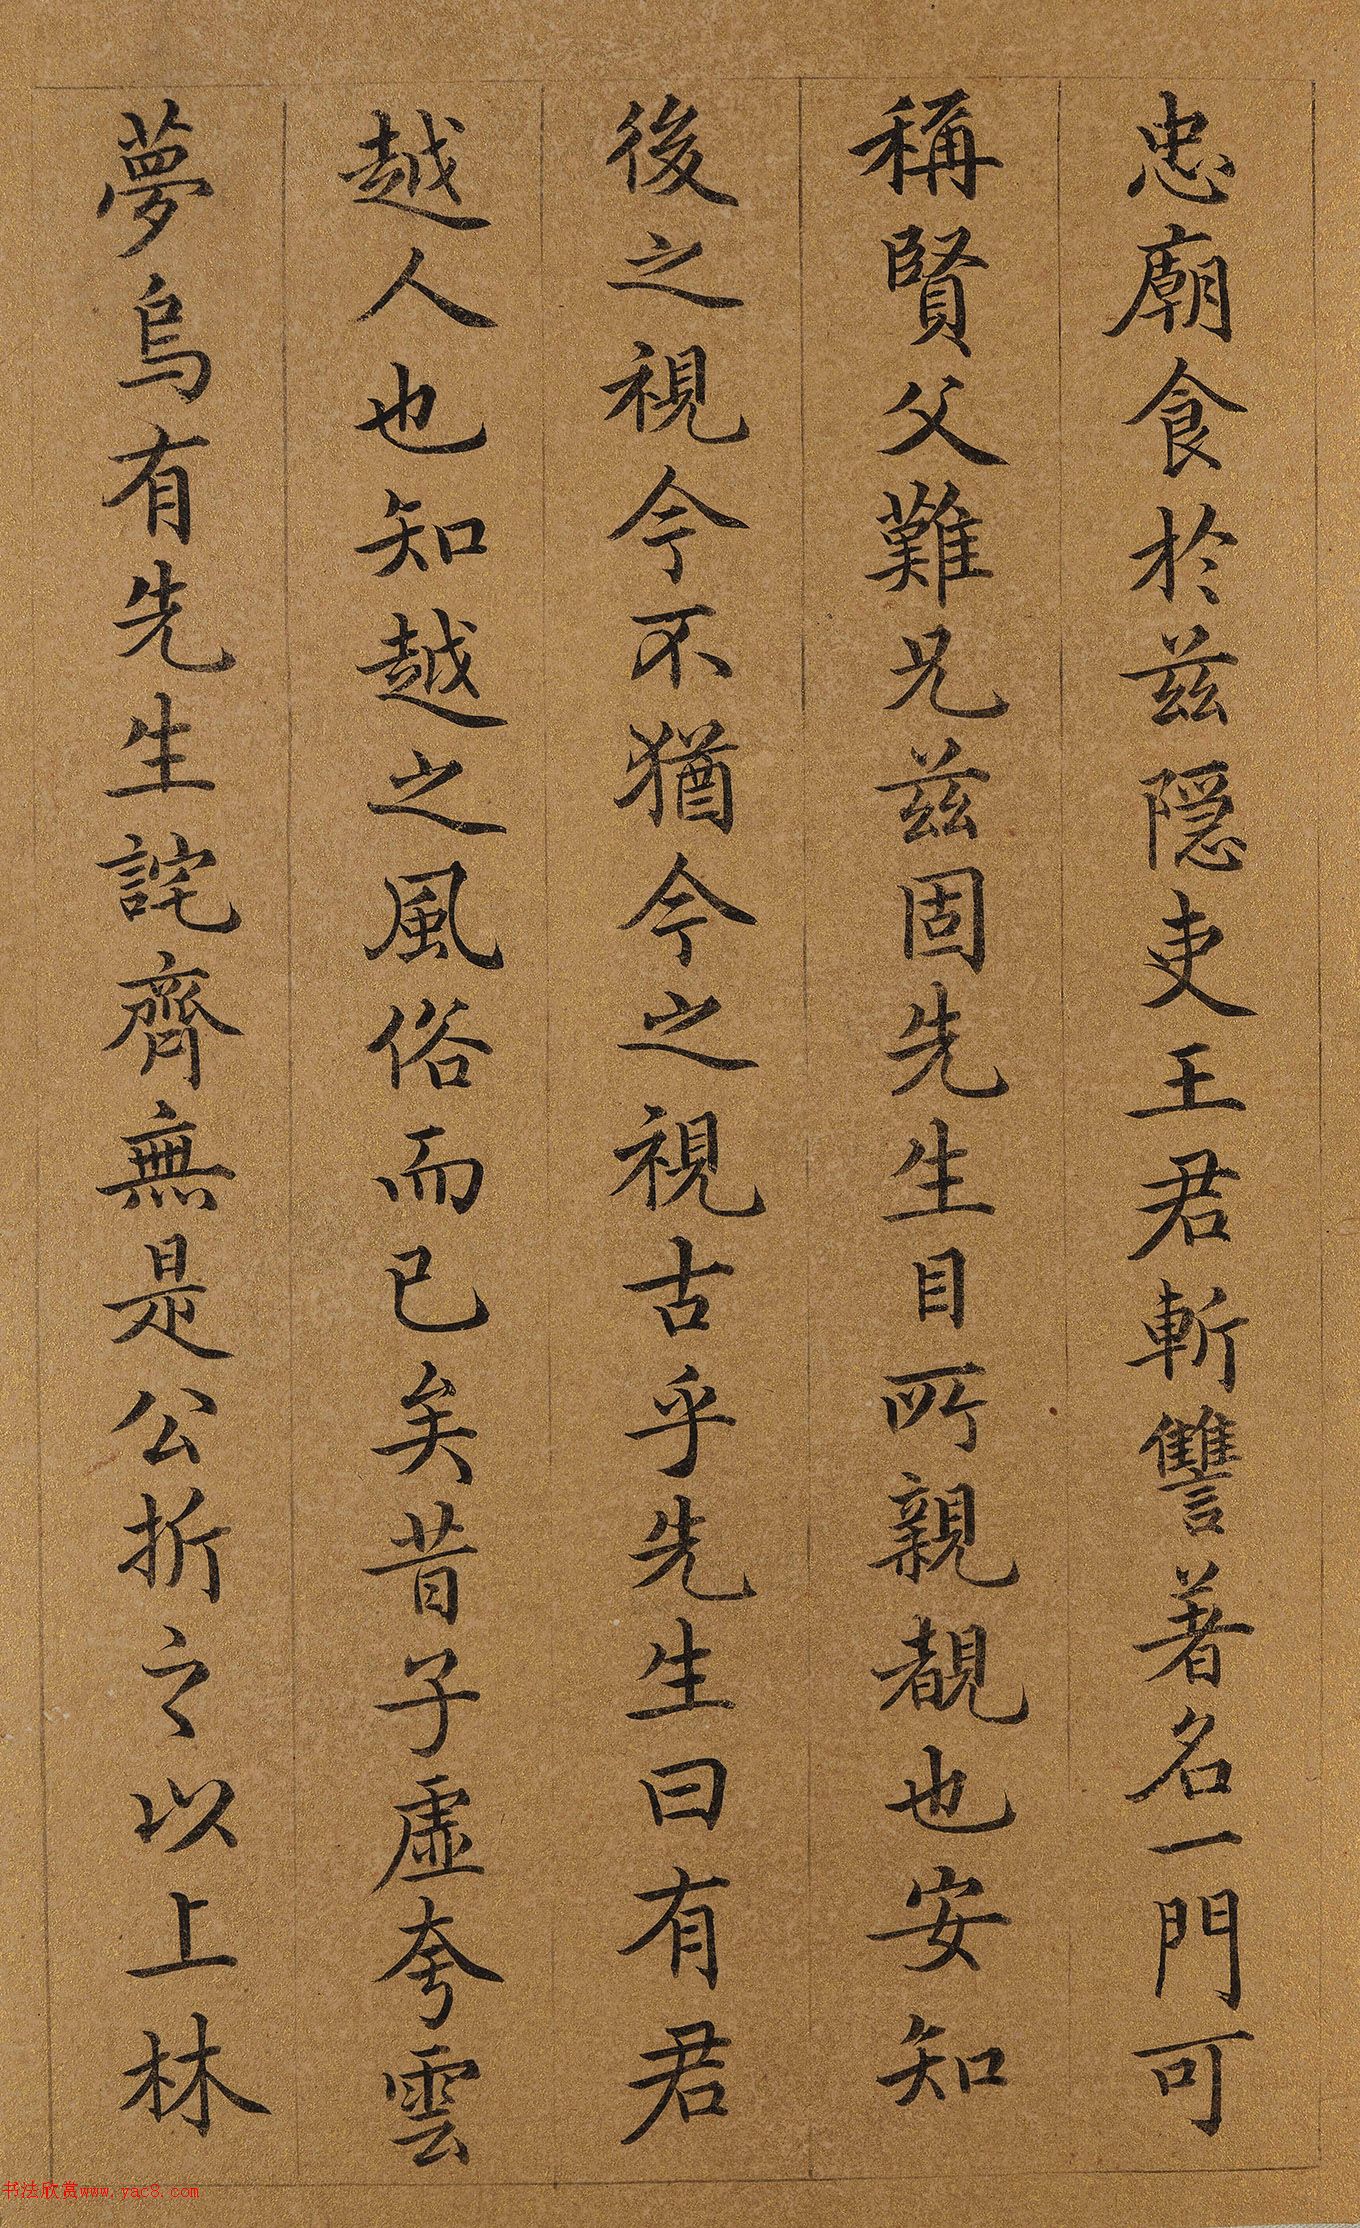 忠廟食於茲隱吏王君斬讐著名一門可
稱賢父難兄茲固先生目所親覩也安知
後之視今不猶今之視古乎先生曰有君
越人也知越之風俗而已矣昔子虛夸雲
夢烏有先生詫齊無是公折之以上林
书法欣赏www.yac8.com